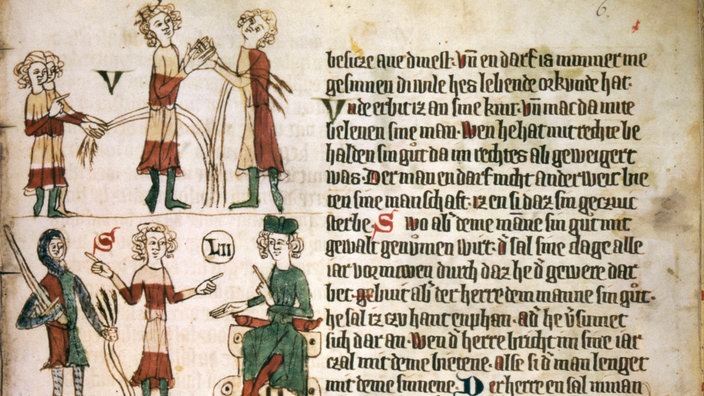 6.
V
S
LII
besicze ane dinest· vn̄ en darf is nimmer me
gesinnen di wile hes lebende orkunde hat·
Vnde erbit iz an sine kint· vn̄ mac da mite
belenen sine man· Wen he hat mit rechte be
halden sin gůt da im rechtes ab geweigert
was· Der man en darf nicht anderweit bie
ten sine manschaft· iz en si daz sin geczuc
sterbe· Swo ab deme manne sin gut mit
gewalt genům̄en wirt· d' sal sine clage alle
iar vornuwen durch daz he d' gewere dar
bet· gebuit ab' der herre dem manne sin gůt·
he sal iz czu hant enphan· sumet
sich dar an· Wen d' herre bricht im sine iar
czal mit deme bietene· alse si d' man lenget
mit deme sinnene· Der herre en sal niman